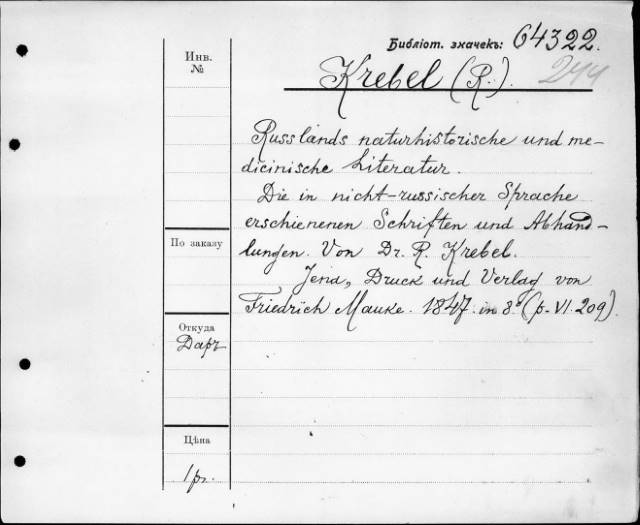 Библіот. значекъ: 64322.
244
Krebel (R.).
Инв.
№
Russlands naturhistorische und me-
dicinische Literatur.
Die in nicht-russischer Sprache
erschienenen Schriften und Abhand-
lungen. Von Dr. R. Krebel.
Jena, Druck und Verlag von
Friedrich Mauke. 1847. in 8° (p. VI. 209).
По заказу
Откуда
Даръ
Цѣна
1 р.